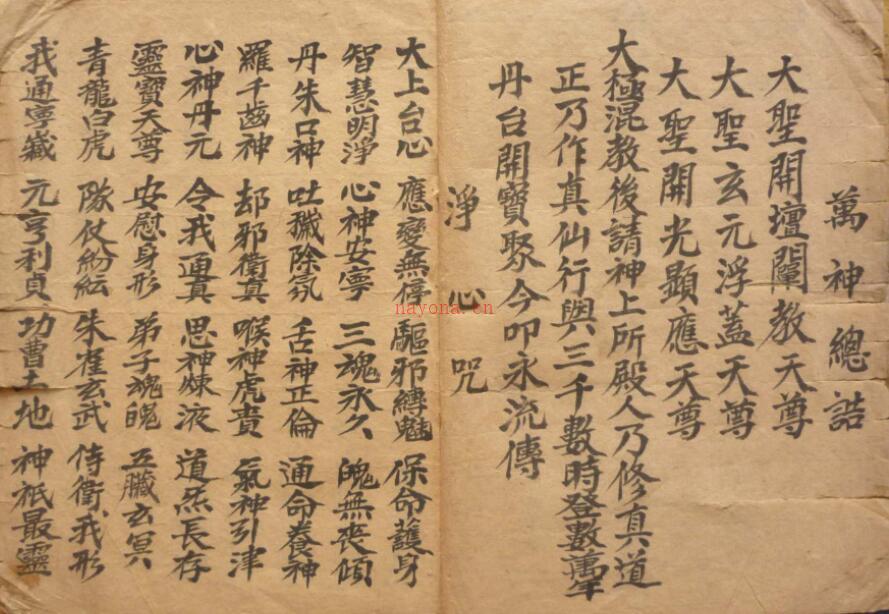 萬神總誥
大聖開壇闡教天尊
大聖玄元浮蓋天尊
大聖開光顯應天尊
大極混教後請神上所殿人乃修真道
正乃作真仙行與三千數時登數萬年
丹台開寶聚今叩永流傳
淨心咒
大上台心 應變無停 驅邪縛魅 保命護身
智慧明淨 心神安寧 三魂永久 魄無喪傾
丹朱口神 吐穢除氛 舌神正倫 通命養神
羅千齒神 却邪衛真 喉神虎賁 氣神引津
心神丹元 令我通真 思神煉液 道炁長存
靈寶天尊 安慰身形 弟子魂魄 五臟玄冥
青龍白虎 隊仗紛紜 朱雀玄武 侍衛我形
我通寧藏 元亨利貞 功曹土地 神祇最靈
nayona.cn